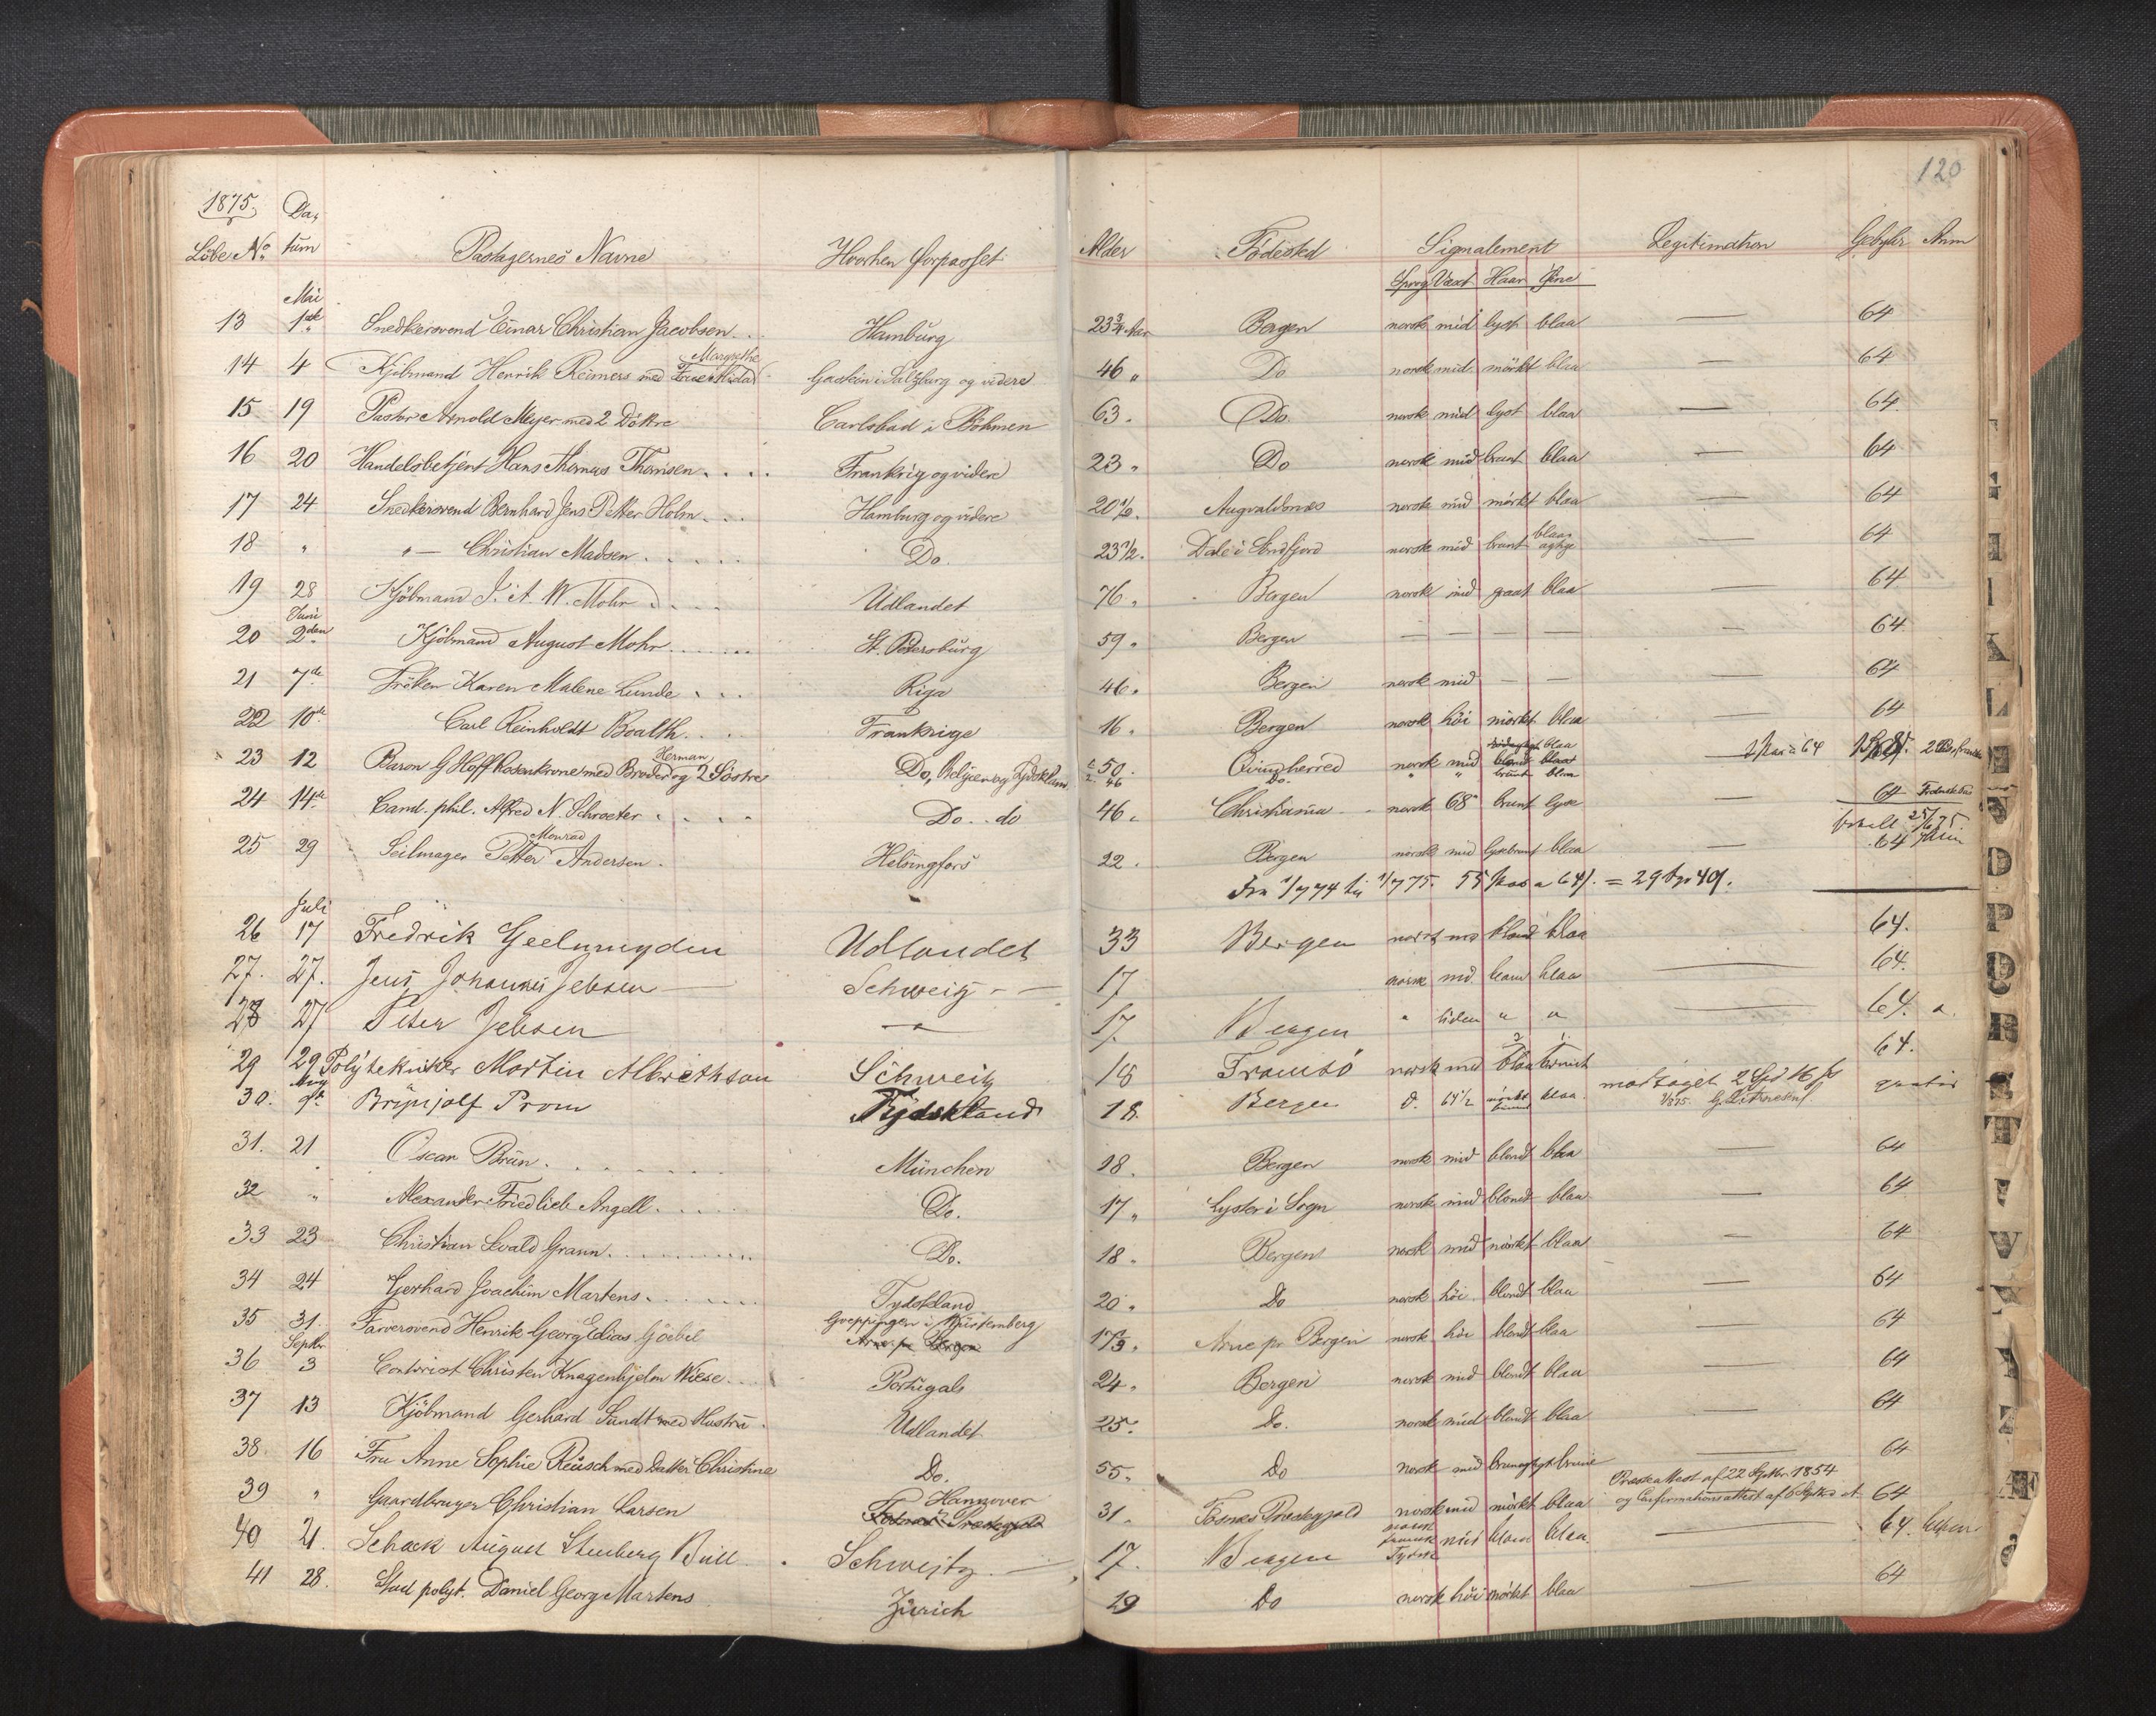 120
1875. Da,
Löbe No. tum Passagernes Navne Hvorhen Forpasset Alder Födested Signalement Legitimation Gebyhr Anm
Sprog Væxt Haar Öine
Mai
13 1ste Snedkersvend Einar Christian Jacobsen Hamburg 23 3/4 Aar Bergen norsk mid lyst blaa — 64
Margrethe
14 4 Kjöbmand Henrik Reimers med Frue Gastein i Salzburg og videre 46 " Do norsk mid mörkt blaa — 64
15 19 Pastor Arnold Meyer med 2 Döttre Carlsbad i Böhmen 63 . Do. norsk mid lyst blaa — 64.
16 20 Handelsbetjent Hans Thomas Thomsen . . . . Frankrig og videre 23 " Do norsk mid brunt blaa — 64
17 24 Snedkersvend Bernhard Jens Petter Holm . . . Hamburg og videre 20 1/2 . Augvaldsnæs norsk mid mörkt blaa — 64
18 " " — Christian Madsen . . . . . Do. 23 1/2 . Dale i Söndfjord norsk mid brunt blaaagtige — 64
19 28 Kjöbmand J. A. W. Mohr . . . . Udlandet 76 " Bergen norsk mid graat blaa — 64
Juni
20 2den Kjöbmand August Mohr . . . . . St. Petersburg 59 " Bergen — — — — — 64
21 7de Fröken Karen Malene Lunde . . . Riga 46 " Bergen norsk mid — — — 64
22 10de Carl Reinholdt Boalth . . . . Frankrige 16 " Bergen norsk höi mörkt blaa — 64
Herman rödagtigt blaa
23 12 Baron G Hoff Rosenkrone med Broder og 2 Söstre Do, Belgien og Tydskland 50 . Qvindherred norsk mid blondt blaat 2 Pas a 64
2. 46 Do. " " brunt blaa
24 14de Cand. phil. Alfred N. Schroeter . . . . Do . . do 46 . Christiania norsk 68" brunt lyse — 64
25/6 75
Monrad
25 29 Seilmager Petter Andersen . Helsingfors 22 . Bergen norsk mid lysebrunt blaa — 64
Fra 1/7 74 til 1/7 75. 55 Pas a 64 . = 29 49.
Juli
26 17 Fredrik Geelmuyden Udlandet 33 Bergen norsk mid blond blaa 64.
27. 27. Jens Johannes Jebsen — Schweitz — 17 norsk mid. blaa — 64.
28 27 Peter Jebsen — " — 17. Bergen " liden " " — 64.
29 29 Polytekniker Martin Albrethson Schweitz 18 Tromsö norsk mid blaa brunt 64.
Aug
30. 9de Brynjolf Prom Tydskland 18. Bergen d. 64 1/2 mörkt brunt blaa modtaget 2 Spd 16 gratis
31. 21 Oscar Brün . . . . . . . München 18 . Bergen norsk mid blondt blaa — 64
32 " Alexander Friedlieb Angell . . . . . Do. 17 " Lyster i Sogn norsk mid blondt blaa — 64
33 23 Christian Evald Grann . . . . . . . . Do. 18 " Bergen norsk mid mörkt blaa — 64
34 24 Gerhard Joachim Martens . . . . . . Tydskland 20 " Do norsk höi blondt blaa — 64
35 31. Farversvend Henrik Georg Elias Göebel Goeppingen i Würtemberg 17 2/3 . Arne pr Bergen norsk höi blondt blaa — 64
Arne pr Bergen
Septbr
36 3 Contorist Christen Knagenhjelm Wiese . . . Portugal 24 " Bergen norsk mid blondt blaa — 64
37 13 Kjöbmand Gerhard Sundt med Hustru . Udlandet 25 " Do. norsk mid blondt blaa — 64
38. 16 Fru Anne Sophie Reusch med Datter Christine Do. 55 " Do norsk mid brunagtigt brune — 64
Hannover Præsteattest af 22 Septbr. 1854
39 " Gaardbruger Christian Larsen Fosnæs Præstegjeld 31 . Fosnæs Præstegjeld norsk mid mörkt blaa og Confirmationsattest af 6 64
norsk
40 21. Schack August Steenberg Bull . Schweitz . — 17. Bergen fransk mid blond blaa — 64.
Tydsk
41 28. Stud polyt. Daniel Georg Martens Zürich 19 Do norsk höi mörkt blaa — 64
I K L D P Q R S T V Y Z Æ